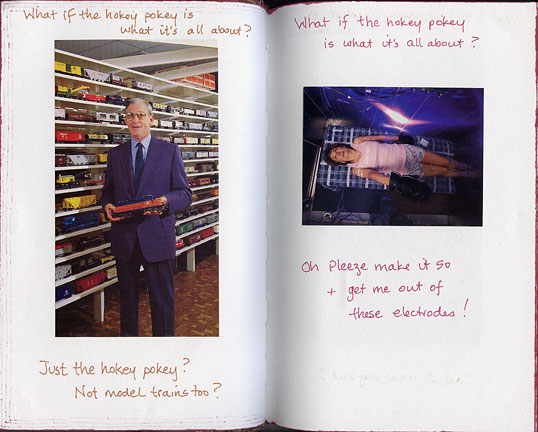 What if the hokey pokey is
what it's all about?
Just the hokey pokey?
Not model trains too?
What if the hokey pokey
is what it's all about?
Oh Pleeze make it so
+ get me out of
these electrodes!